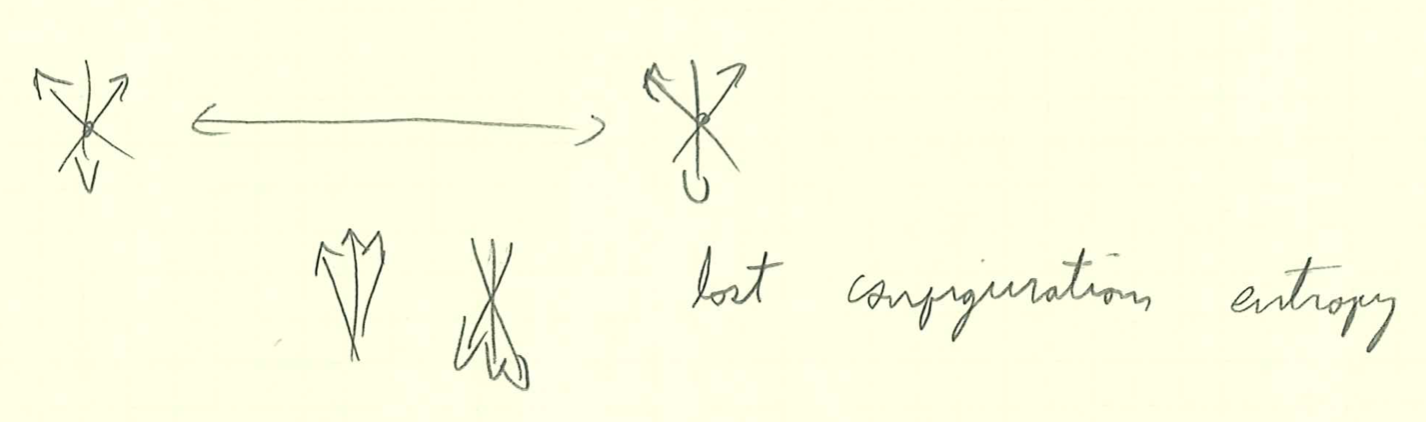 lost configurations entropy